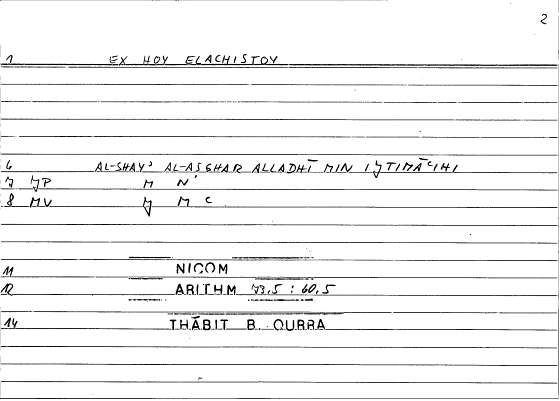 2
1 EX HOY ELACHISTOY
6 AL-SHAYʾ AL-ASGHAR ALLADHĪ MIN IJTIMĀʿIHI
7 JP M N'
8 MV J M C
11 NICOM
12 ARITHM 73,5 : 60,5
14 THĀBIT B. QURRA